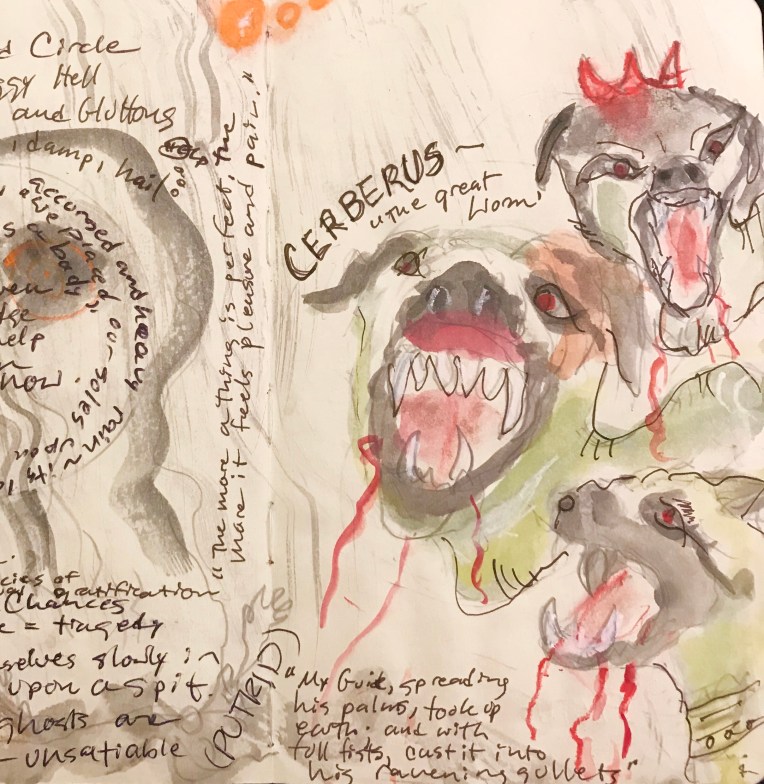 Circle
Hell
and Gluttons
, damp, hail
HELP
accursed and heavy rain ~
"we placed our soles upon its
s a body
help
now.
"The more a thing is perfect, the
more it feels pleasure and pain."
CERBERUS ~
"the great
Worm'
cies of
gratification
Chances
e = tragedy
selves slowly in
upon a spit.
ghosts are
- unsatiable
(PUTRID)
"My Guide, spreading
his palms, took up
earth. and with
full fists, cast it into
his ravening gullets"